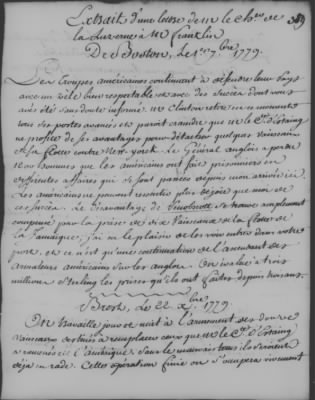 Extrait d'une lettre de M le Ch.er de
la Luzerne à Mr franklin
De Boston, le 1er 7bre 1779.
Les Troupes américaines continuent à défendre leur Pays
avec un zèle bien respectable et avec des Succès dont vous
avés été sans doute informé. Mr Clinton retire en ce moment
tous ses postes avancés et paroit craindre que M le Cte d'Estaing
ne profite de ses avantages pour détacher quelques vaisseaux
de sa flotte contre New-york. Le Général anglois a perdu
hommes que les américains ont fait prisonniers en
différentes affaires qui se sont passées depuis mon arrivée ici.
Les américains ne peuvent ressentir plus de joie que moi de
ces succès. Le désavantage de Penobscott se trouve amplement
compensé par la prise de dix Vaisseaux de la flotte de
la Jamaïque, j'ai eu le plaisir de les voir entrer dans notre
port, et ce n'est qu'une continuation de l'ascendant des
armateurs américains sur les anglois. On évalue à trois
millions Sterling les prises qu'ils ont faites depuis trois ans.
Brest, le 22 Xbre 1779
On travaille jour et nuit à l'armement des douze
vaisseaux destinés à remplacer ceux que M le Cte d'Estaing
a ramenés de l'amérique
déja en rade. Cette opération finie on s'occupera vivement